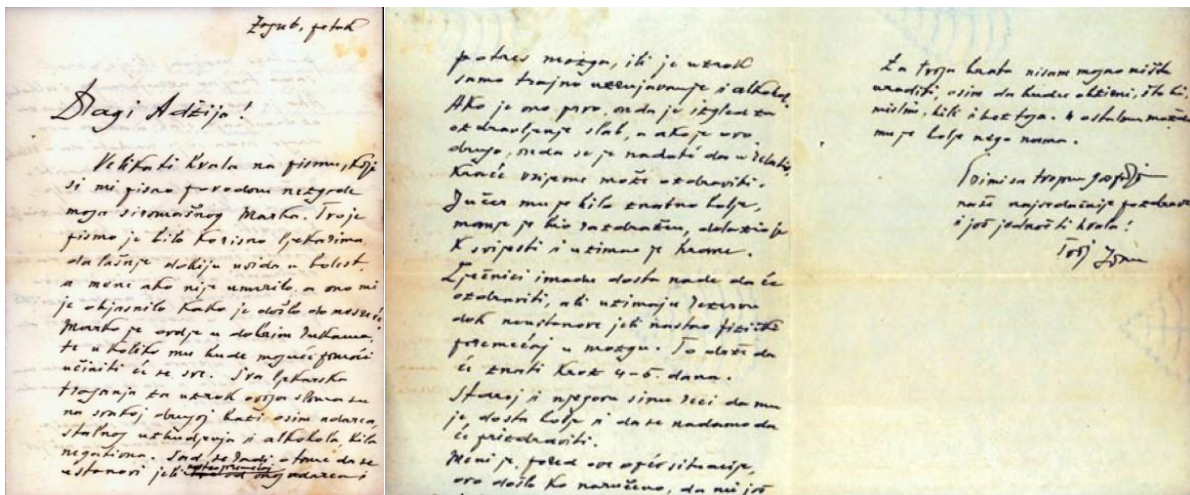 Zagreb, petak
Dragi Adžija!
Velika ti hvala na pismu, koje
si mi pisao povodom nezgode
moga siromašnog Marka. Tvoje
pismo je bilo korisno ljekarima,
da lakše dobiju uvida u bolest,
a mene ako nije umirilo, a ono mi
je objasnilo kako je došlo do nesreće.
Marko je ovdje u dobrim rukama,
te u koliko mu bude moguće pomoći
učiniti će se sve. Sva ljekarska
traganja za uzrok ovoga sloma su
na svakoj drugoj bazi osim udarca,
stalnog uzbudjenja i alkohola bila
negativna. Sad se radi o tome da se
ustanovi jeli nastao premećaj od udarca i
potres mozga, ili je uzrok
samo trajno uzrujavanje i alkohol.
Ako je ono prvo, onda je izgled za
ozdravljenje slab, a ako je ovo
drugo, onda se je nadati da u relativno
kraće vrijeme može ozdraviti.
Jučer mu je bilo znatno bolje,
manje je bio razdražen, dolazio je
k svijesti i uzimao je hrane.
Liječnici imadu dosta nade da će
ozdraviti, ali uzimaju rezervu
dok neustanove jeli nastao fizički
premećaj u mozgu. To drže da
će znati kroz 4-5. dana.
Staroj i njegovu sinu reci da mu
je dosta bolje i da se nadamo da
će prizdraviti.
Meni je, pored ove opće situacije,
ovo došlo ko naručeno, da mi još
Za tvoga brata nisam mogao ništa
uraditi, osim da budu obzirni, što bi,
mislim, bili i bez toga. U ostalom možda
mu je bolje nego nama.
Primi sa tvojom gospodjom
naše najsrdačnije pozdrave
i još jednoć ti hvala!
Tvoj